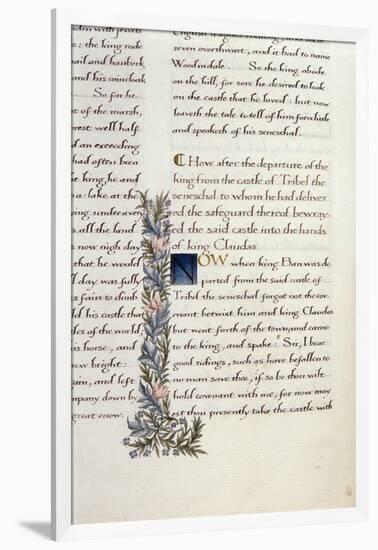 den with jewels
s: the king rode
ail and hauberk
and his raincloak
So far he
of the marsh,
rest well half
d an exceeding
had often been
e king, he and
a lake at the
ng, under a ven
all the land
now nigh day
that he would
d day was fully
s fain to climb
ld his castle that
des of the world,
is horse, and
new bright:
ain, and left
mpany down by
great enow.
seven overthwart, and it had to name
Woodindale. So the king abode
on the hill, for sore he desired to look
on the castle that he loved: but now
leaveth the tale to tell of him for a little
and speaketh of his seneschal.
How after the departure of the
king from the castle of Tribel the
seneschal to whom he had deliver
ed the safeguard thereof bewray
ed the said castle into the hands
of king Claudas
NOW when king Ban was de
parted from the said castle of
Tribel the seneschal forgat not the cov
enant betwixt him and king Claudas
but went forth of the town, and came
to the king, and spake: Sir, I bear
good ridings, such as have befallen to
no man save thee, if so be thou wilt
hold covenant with me, for now may
est thou presently take the castle with